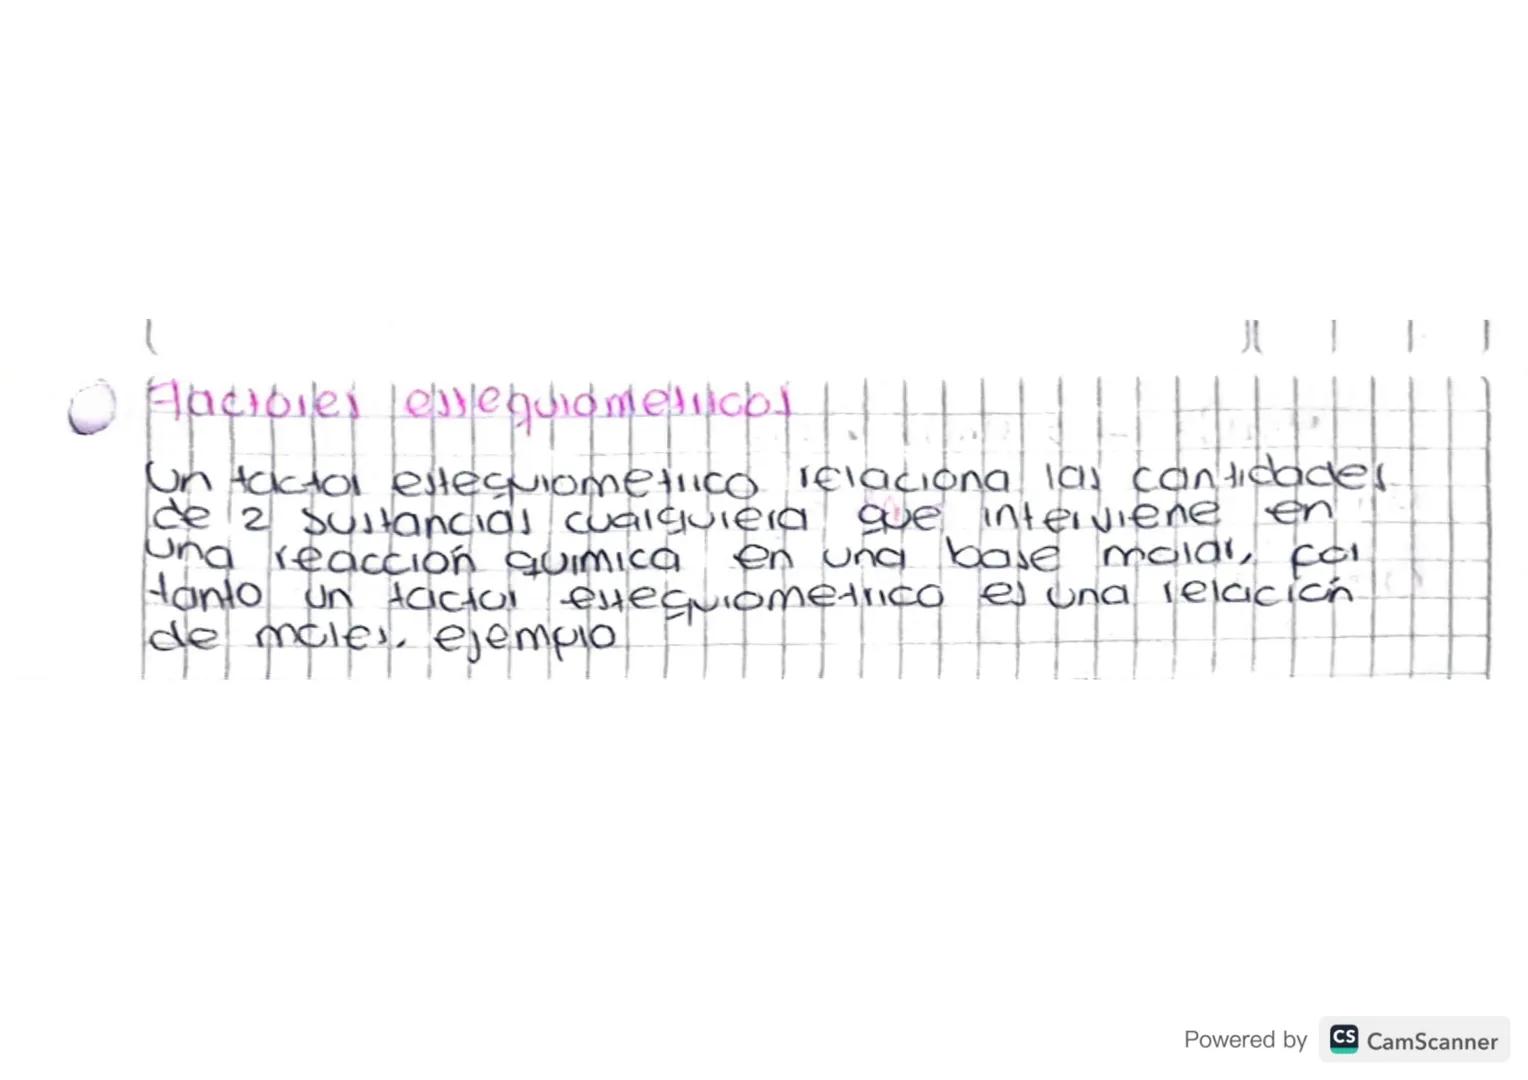 Factores estequiometricos
Un factor estequiometrico relaciona las cantidades
de 2 sustancias cualquiera que interviene en
una reacción quimica en una base molar, por
tanto un factor estequiometrico es una relación
de moles. ejemplo
Powered by CS CamScanner